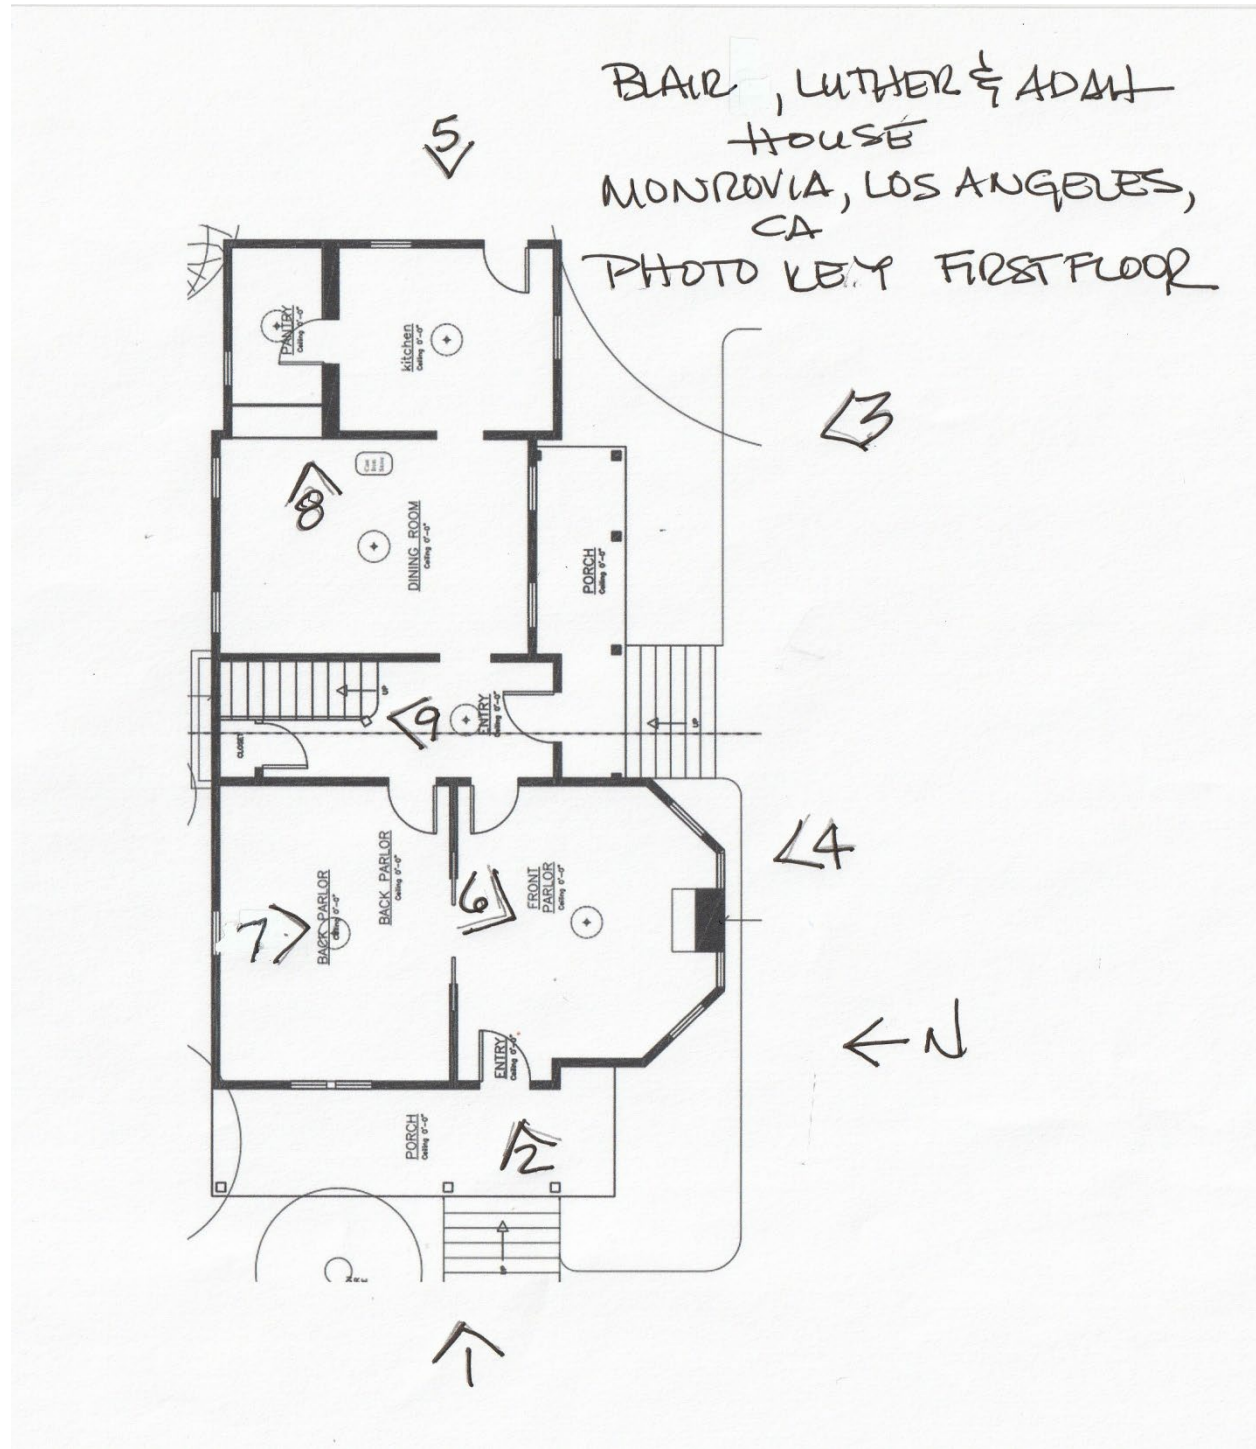 BLAIR, LUTHER & ADAH
HOUSE
MONROVIA, LOS ANGELES,
CA
PHOTO KEY FIRST FLOOR
5
PANTRY
Ceiling 0'-0"
kitchen
Ceiling 0'-0"
3
8
Cast
Iron
Stove
DINING ROOM
Ceiling 0'-0"
PORCH
Ceiling 0'-0"
UP
9
ENTRY
Ceiling 0'-0"
UP
CLOSET
4
BACK PARLOR
Ceiling 0'-0"
BACK PARLOR
Ceiling 0'-0"
7
6
FRONT
PARLOR
Ceiling 0'-0"
N
ENTRY
Ceiling 0'-0"
PORCH
Ceiling 0'-0"
2
UP
1